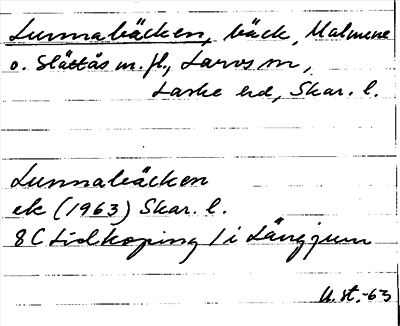 Lunnabäcken, bäck, Malmene
o. Slättås m. fl., Larvs sn,
Laske hd, Skar. l.
Lunnabäcken
ek (1963) Skar. l.
8C Lidköping 1 i Längjum
U. st. -63